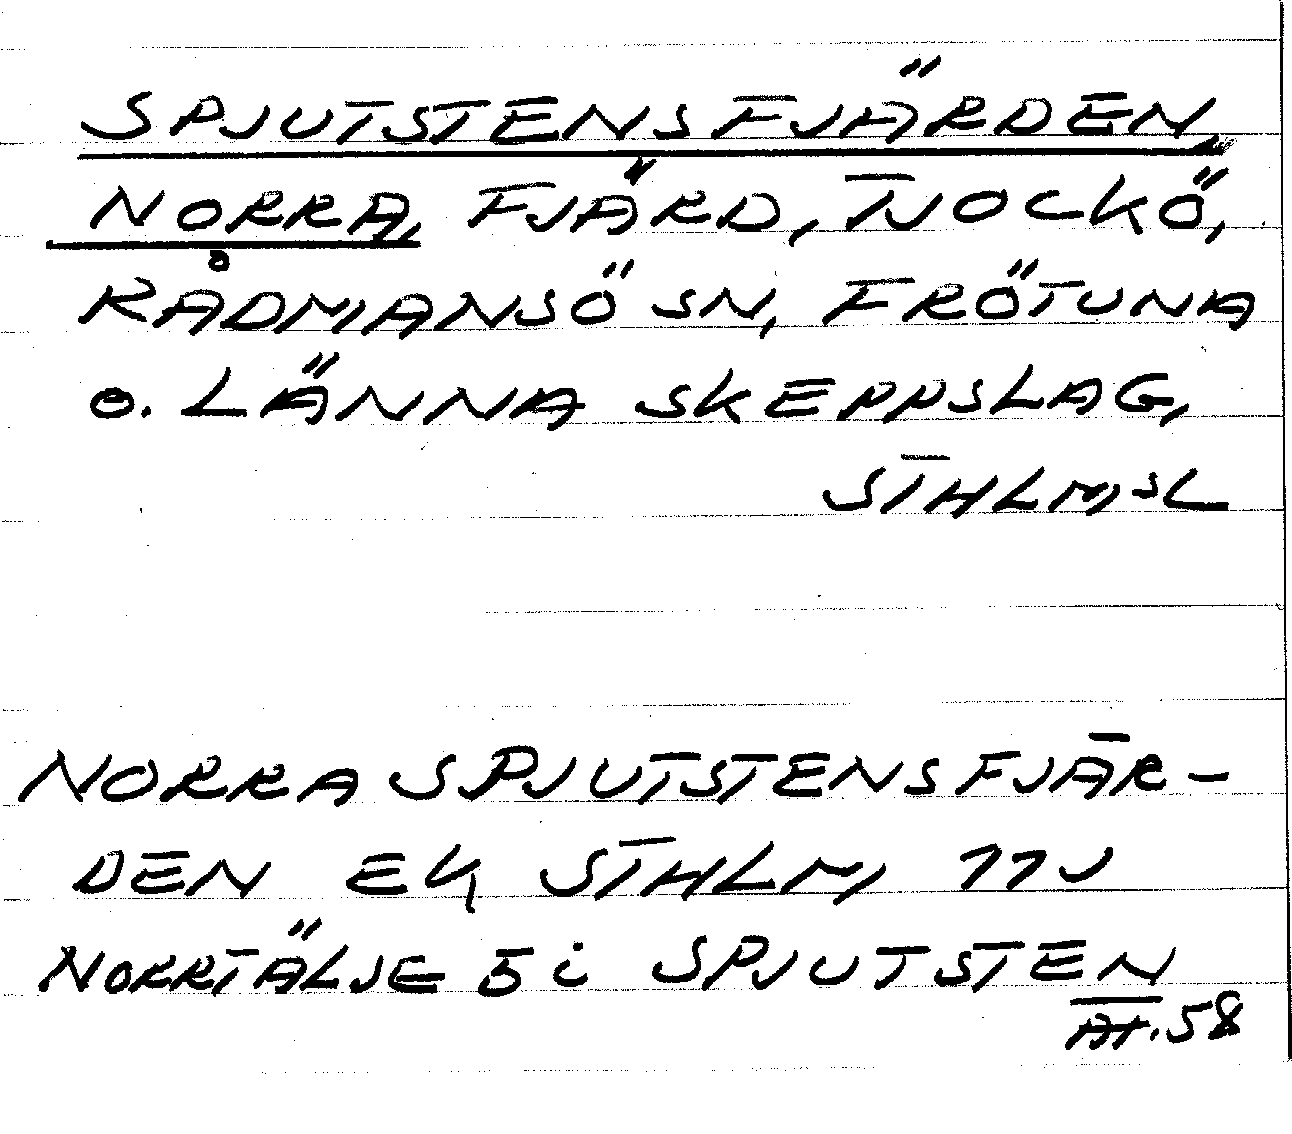 SPJUTSTENSFJÄRDEN,
NORRA, FJÄRD, TJOCKÖ,
RÅDMANSÖ SN, FRÖTUNA
o. LÄNNA SKEPPSLAG,
STHLMSL
NORRA SPJUTSTENSFJÄR-
DEN EK STHLM, 11J
NORRTÄLJE 5 i SPJUTSTEN
58